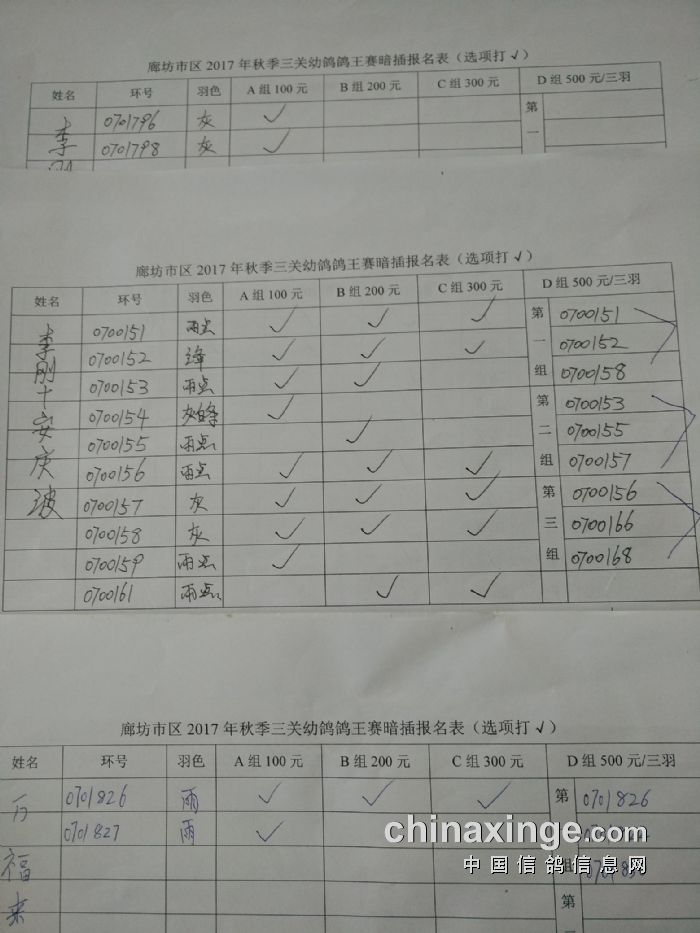 廊坊市区 2017 年秋季三关幼鸽鸽王赛暗插报名表（选项打 √）
姓名 环号 羽色 A 组 100 元 B 组 200 元 C 组 300 元 D 组 500 元/三羽
李 0701796 灰 ✓ 第
0701798 灰 ✓ 一
廊坊市区 2017 年秋季三关幼鸽鸽王赛暗插报名表（选项打 √）
姓名 环号 羽色 A 组 100 元 B 组 200 元 C 组 300 元 D 组 500 元/三羽
李刚十安庆波
0700151 雨点 ✓ ✓ ✓ 第 0700151
0700152 绛 ✓ ✓ ✓ 一 0700152
0700153 雨点 ✓ ✓ 组 0700158
0700154 灰 ✓ 第 0700153
0700155 雨点 ✓ 二 0700155
0700156 雨点 ✓ ✓ ✓ 组 0700157
0700157 灰 ✓ ✓ ✓ 第 0700156
0700158 灰 ✓ ✓ ✓ 三 0700166
0700159 雨点 ✓ 组 0700168
0700161 雨点 ✓ ✓
廊坊市区 2017 年秋季三关幼鸽鸽王赛暗插报名表（选项打 √）
姓名 环号 羽色 A 组 100 元 B 组 200 元 C 组 300 元 D 组 500 元/三羽
0701826 雨 ✓ ✓ ✓ 第 0701826
0701827 雨 ✓
福 组
来 第
chinaxinge.com
中国信鸽信息网